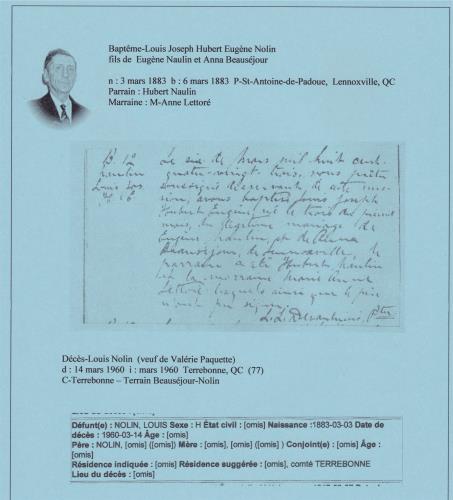 Baptême-Louis Joseph Hubert Eugène Nolin
fils de Eugène Naulin et Anna Beauséjour
n : 3 mars 1883 b : 6 mars 1883 P-St-Antoine-de-Padoue, Lennoxville, QC
Parrain : Hubert Naulin
Marraine : M-Anne Lettoré
B. 12
naulin
Louis Jos
Le six de Mars mil huit cent
quatre-vingt trois, nous prêtre
soussigné desservant de cette mis-
sion, avons baptisé Louis Joseph
Hubert Eugène, né le trois du présent
mois, du légitime mariage de
Eugène naulin, et de Anna
Beauséjour, de Lennoxville. Le
parrain a été Hubert naulin
et la marraine Marie Anne
Lettoré lesquels ainsi que le père
n'ont pu signer.
Ptre
Décès-Louis Nolin (veuf de Valérie Paquette)
d : 14 mars 1960 i : mars 1960 Terrebonne, QC (77)
C-Terrebonne – Terrain Beauséjour-Nolin
Défunt(e) : NOLIN, LOUIS Sexe : H État civil : [omis] Naissance :1883-03-03 Date de
décès : 1960-03-14 Âge : [omis]
Père : NOLIN, [omis] ([omis]) Mère : [omis], [omis] ([omis] ) Conjoint(e) : [omis] Âge :
[omis]
Résidence indiquée : [omis] Résidence suggérée : [omis], comté TERREBONNE
Lieu du décès : [omis]